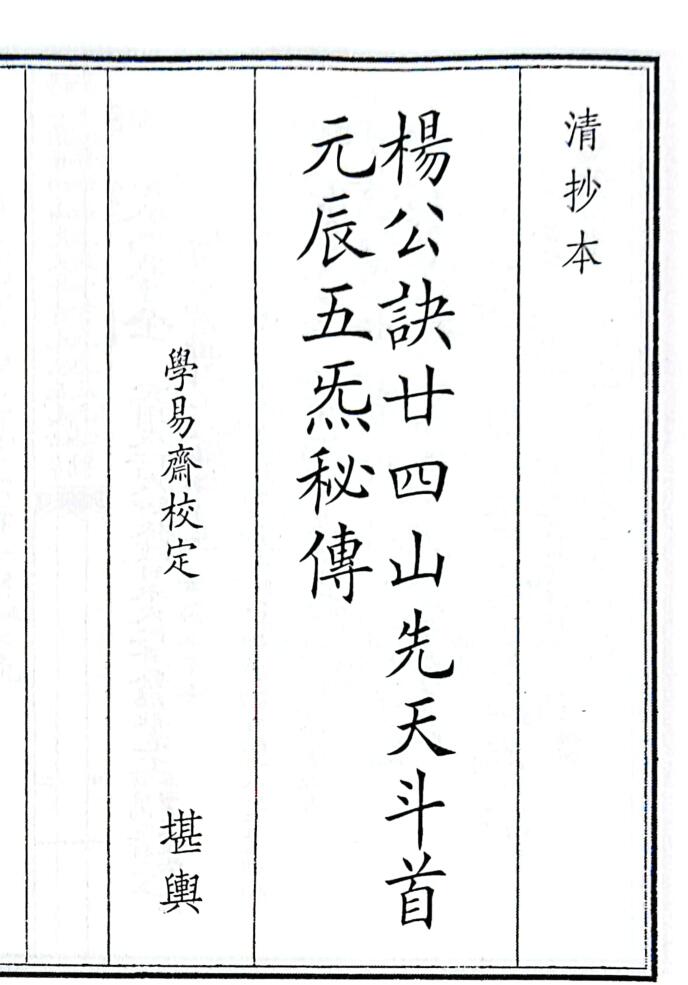 清抄本
楊公訣廿四山先天斗首
元辰五炁秘傳
學易齋校定 堪輿